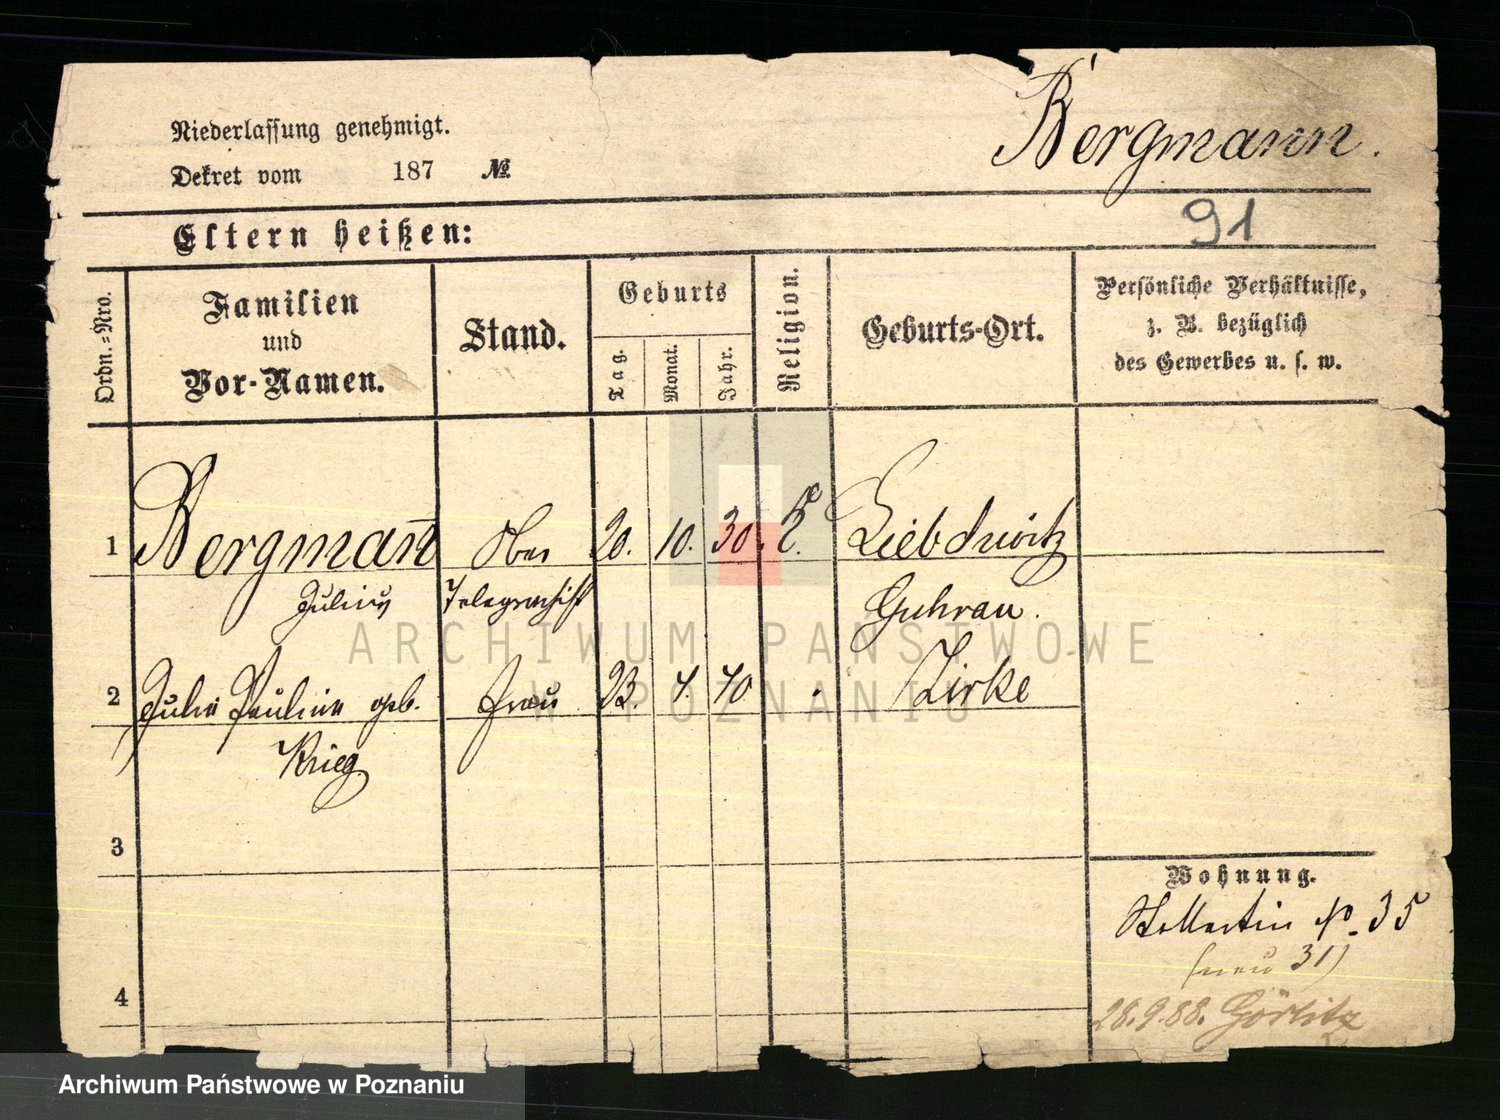 Bergmann.
Niederlassung genehmigt.
Dekret vom 187 №
91
Eltern heißen:
Ordn.-Nro.
Familien
und
Vor-Namen.
Stand.
Geburts
Tag.
Monat.
Jahr.
Religion.
Geburts-Ort.
Persönliche Verhältnisse,
z. B. bezüglich
des Gewerbes u. s. w.
1 Bergmann̄ Ober 20. 10. 30.
Julius Telegraphist Guhrau.
2 Julie Pauline geb. Frau 23. 4. 40 Zirke
Krieg
3
4
Wohnung.
St. Martin № 35
(neu 31)
28.9.88. Görlitz
ARCHIWUM PAŃSTWOWE
W POZNANIU
Archiwum Państwowe w Poznaniu